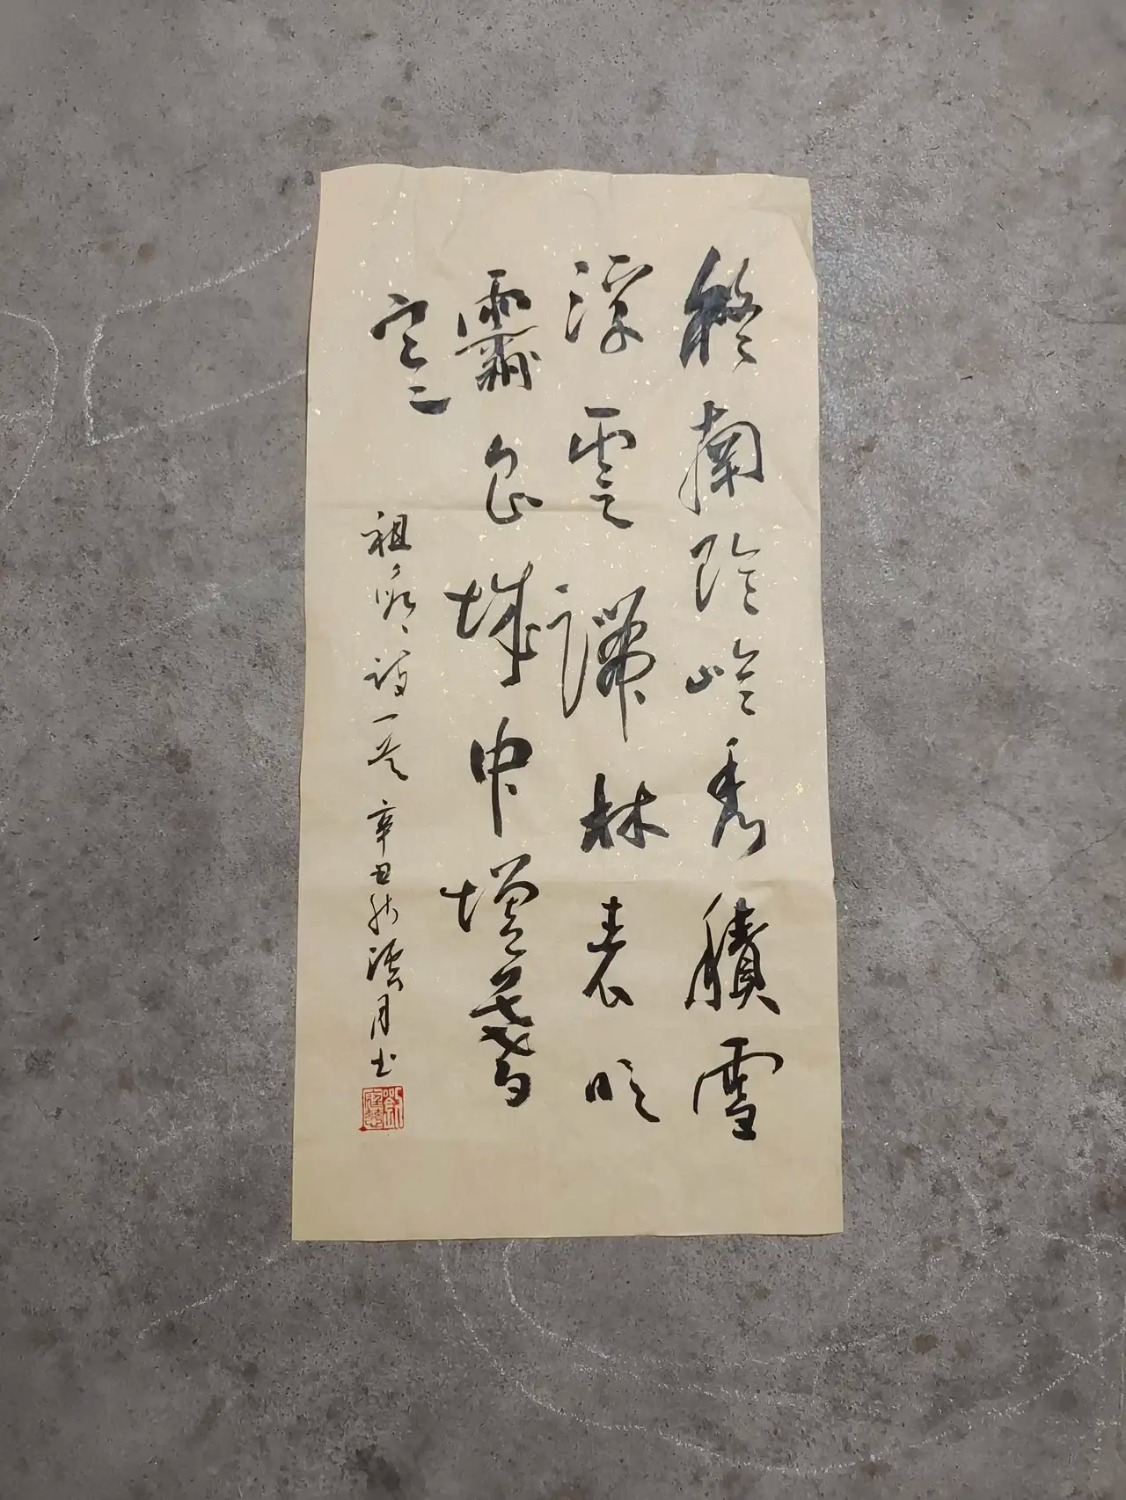 終南陰嶺秀積雪
浮雲端林表明
霽色城中增暮
寒
祖詠詩一首 辛丑秋 月书